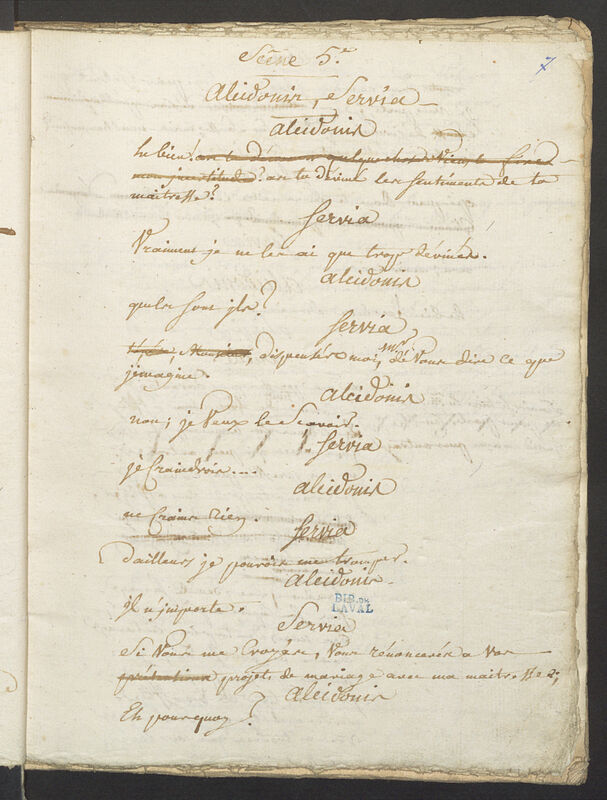 Scêne 5.e
7
alcidonis, Servia
alcidonis
hé bien! as tu deviné quelque chose
as tu deviné les sentiments de ta
maitresse?
Servia
Vraiment je ne les ai que trop dévinés.
alcidonis
quels sont ils?
Servia
Monsieur, dispensés moi, mr de Vous dire ce que
j'imagine.
alcidonis
non; je Veux le Scavoir.
Servia
je Craindrois....
alcidonis
ne Crains rien.
Servia
d'ailleurs je pourois me tromper.
alcidonis
il n'importe.
BIB. DE
LAVAL
Servia
Si Vous me Croyés, Vous rénoncerés a Vos
prétentions projets de mariage avec ma maitresse;
alcidonis
Eh pourquoy?